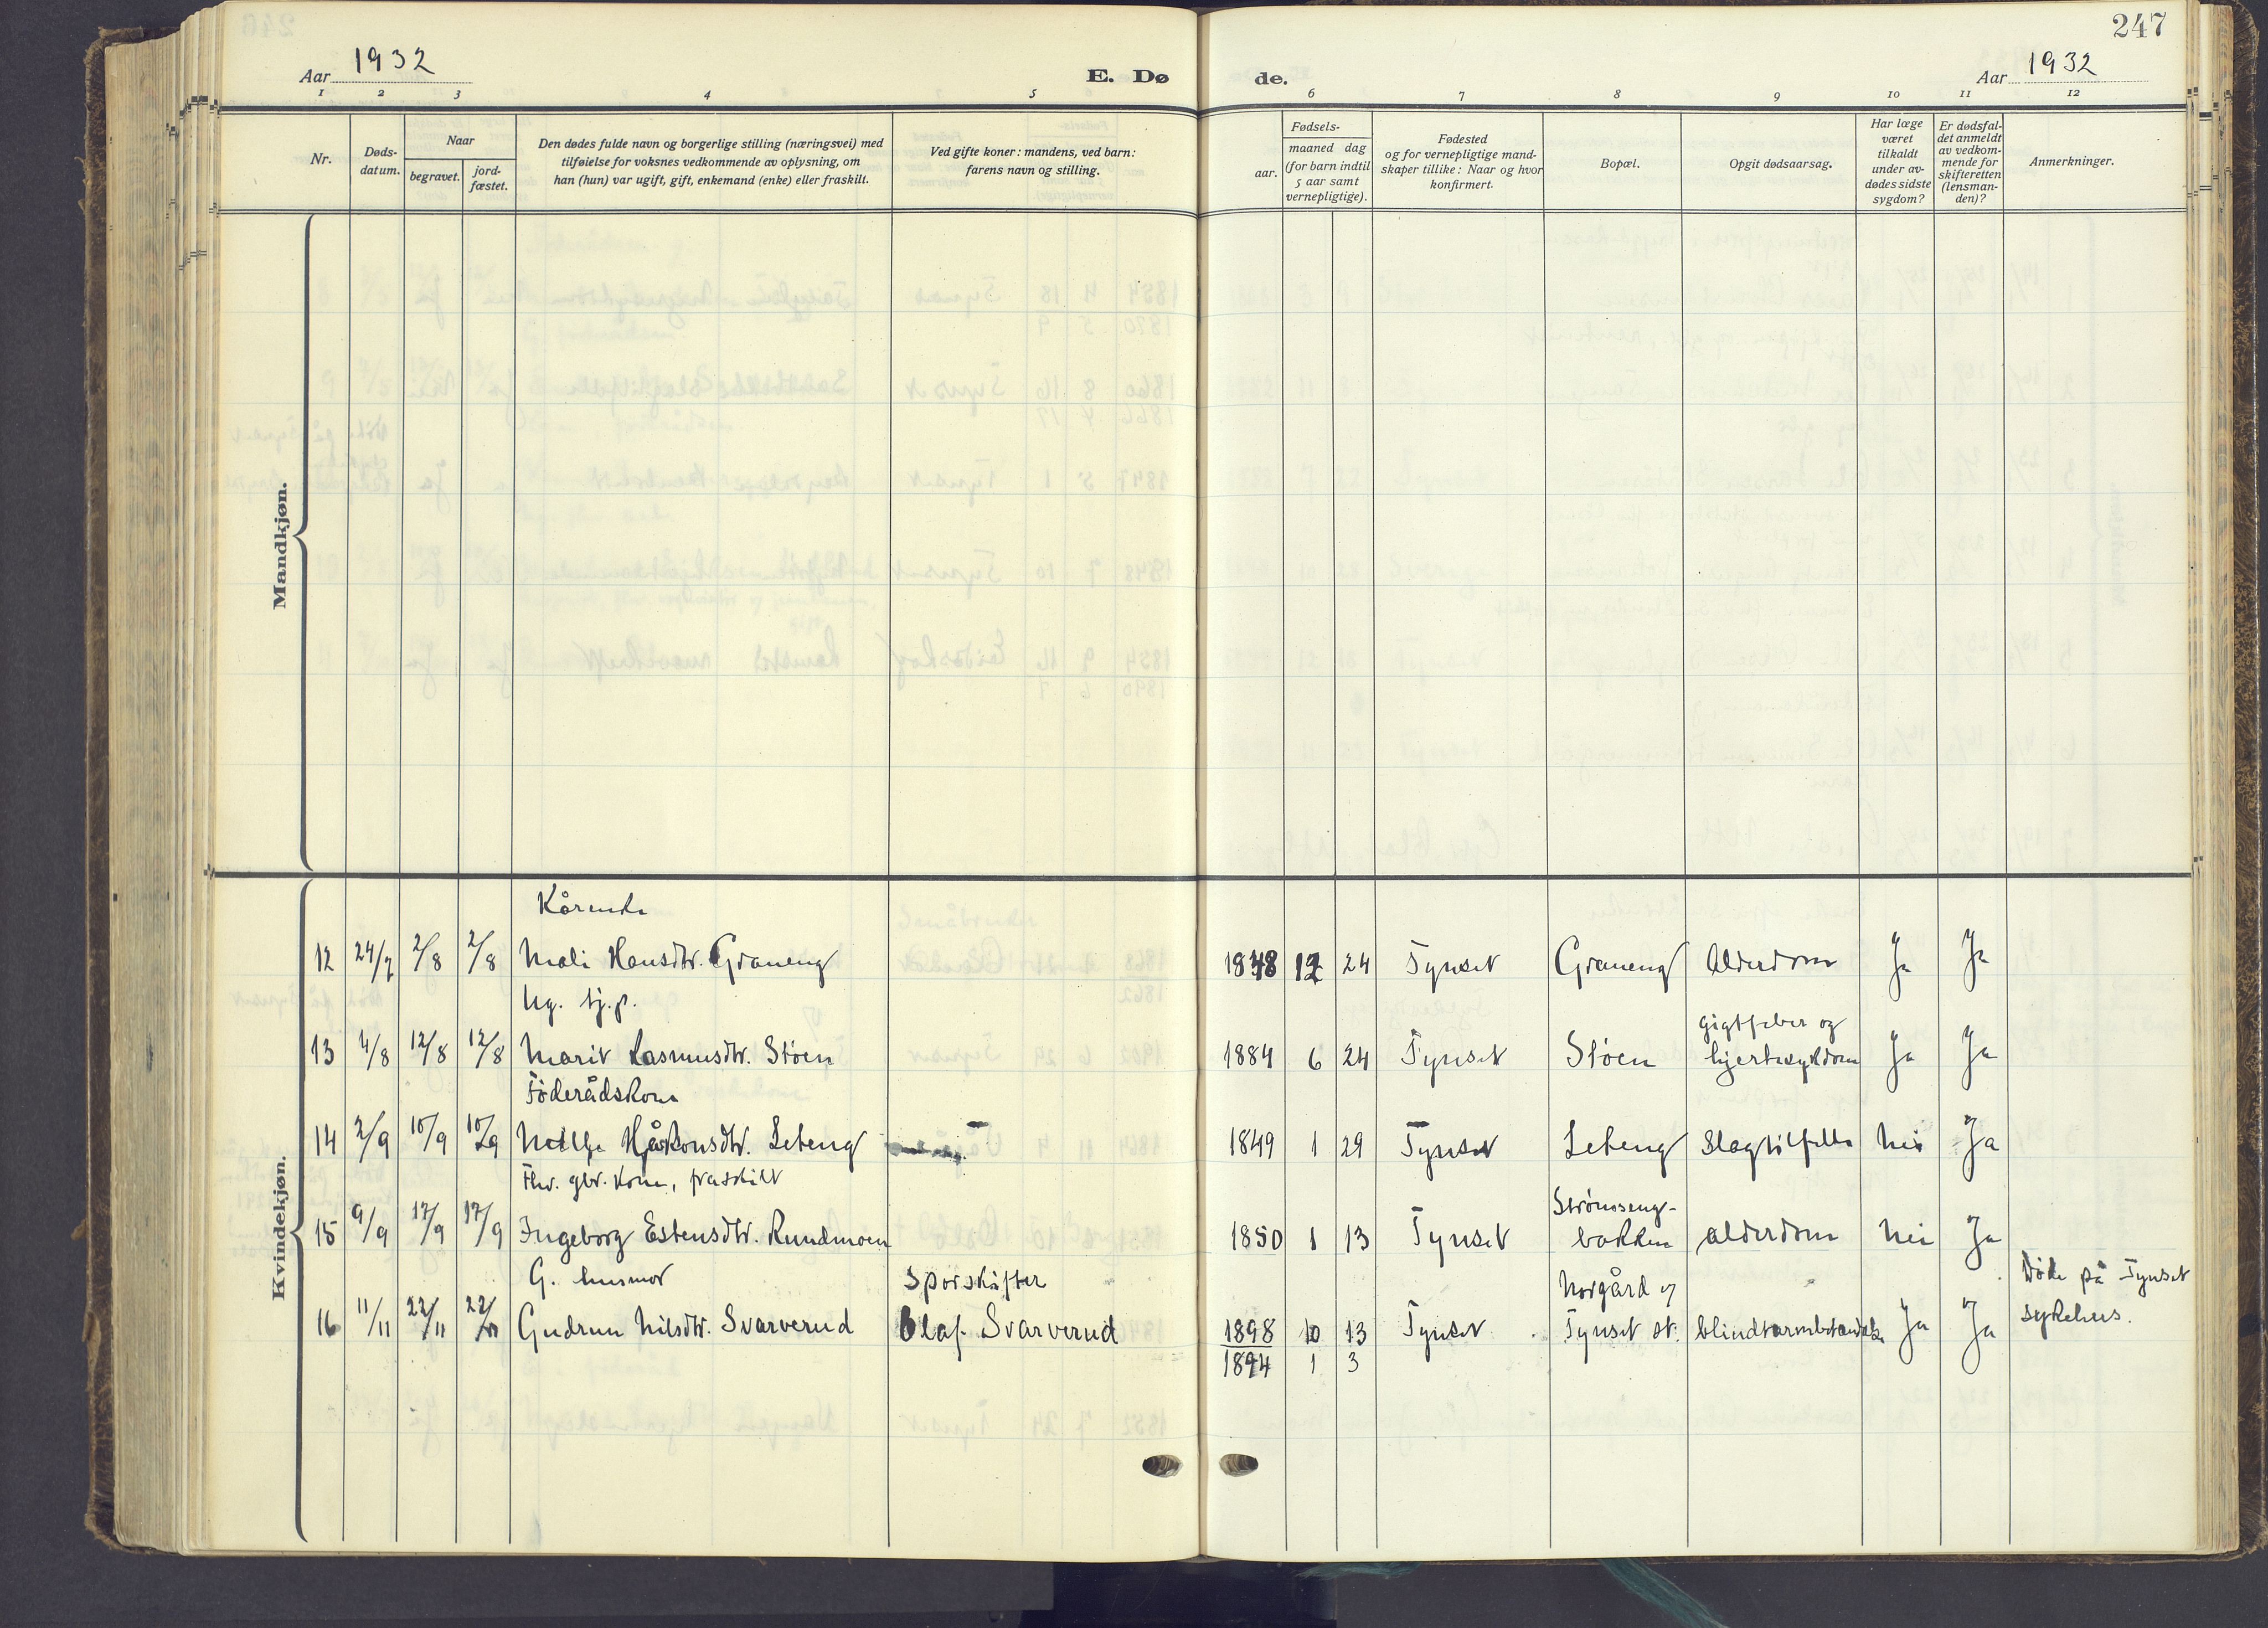 247
Aar 1932
E. Dø
de.
Aar 1932
1 2 3 4 5 6 7 8 9 10 11 12
Nr.
Døds-
datum.
Naar
begravet.
jord-
fæstet.
Den dødes fulde navn og borgerlige stilling (næringsvei) med
tilføielse for voksnes vedkommende av oplysning, om
han (hun) var ugift, gift, enkemand (enke) eller fraskilt.
Ved gifte koner: mandens, ved barn:
farens navn og stilling.
Fødsels-
aar.
maaned dag
(for barn indtil
5 aar samt
vernepligtige).
Fødested
og for vernepligtige mand-
skaper tillike: Naar og hvor
konfirmert.
Bopæl.
Opgit dødsaarsag.
Har læge
været
tilkaldt
under av-
dødes sidste
sygdom?
Er dødsfal-
det anmeldt
av vedkom-
mende for
skifteretten
(lensman-
den)?
Anmerkninger.
Mandkjøn.
Kvindekjøn.
Kårenke
12 24/7 2/8 2/8 Mali Hansdtr. Graneng 1848 12 24 Tynset Graneng Alderdom Ja Ja
Ug. tj.p.
gigtfeber og
13 4/8 12/8 12/8 Marit Rasmusdtr. Støen 1884 6 24 Tynset Støen hjertesykdom Ja Ja
Føderådskone
14 2/9 10/9 10/9 Håkonsdtr. Leteng 1849 1 29 Tynset Leteng Slagtilfelle Nei Ja
Fhv. gbr. kone, fraskilt
Strømseng-
15 9/9 17/9 17/9 Ingeborg Estensdtr. Rundmoen 1850 1 13 Tynset bakken alderdom Nei Ja
G. husmor Sporskifter Norgård og Døde på Tynset
16 11/11 22/11 22/11 Gudrun Nilsdtr. Svarverud Olaf Svarverud 1898 10 13 Tynset Tynset st. blindtarmbetendelse Ja Ja sykehus.
1894 1 3